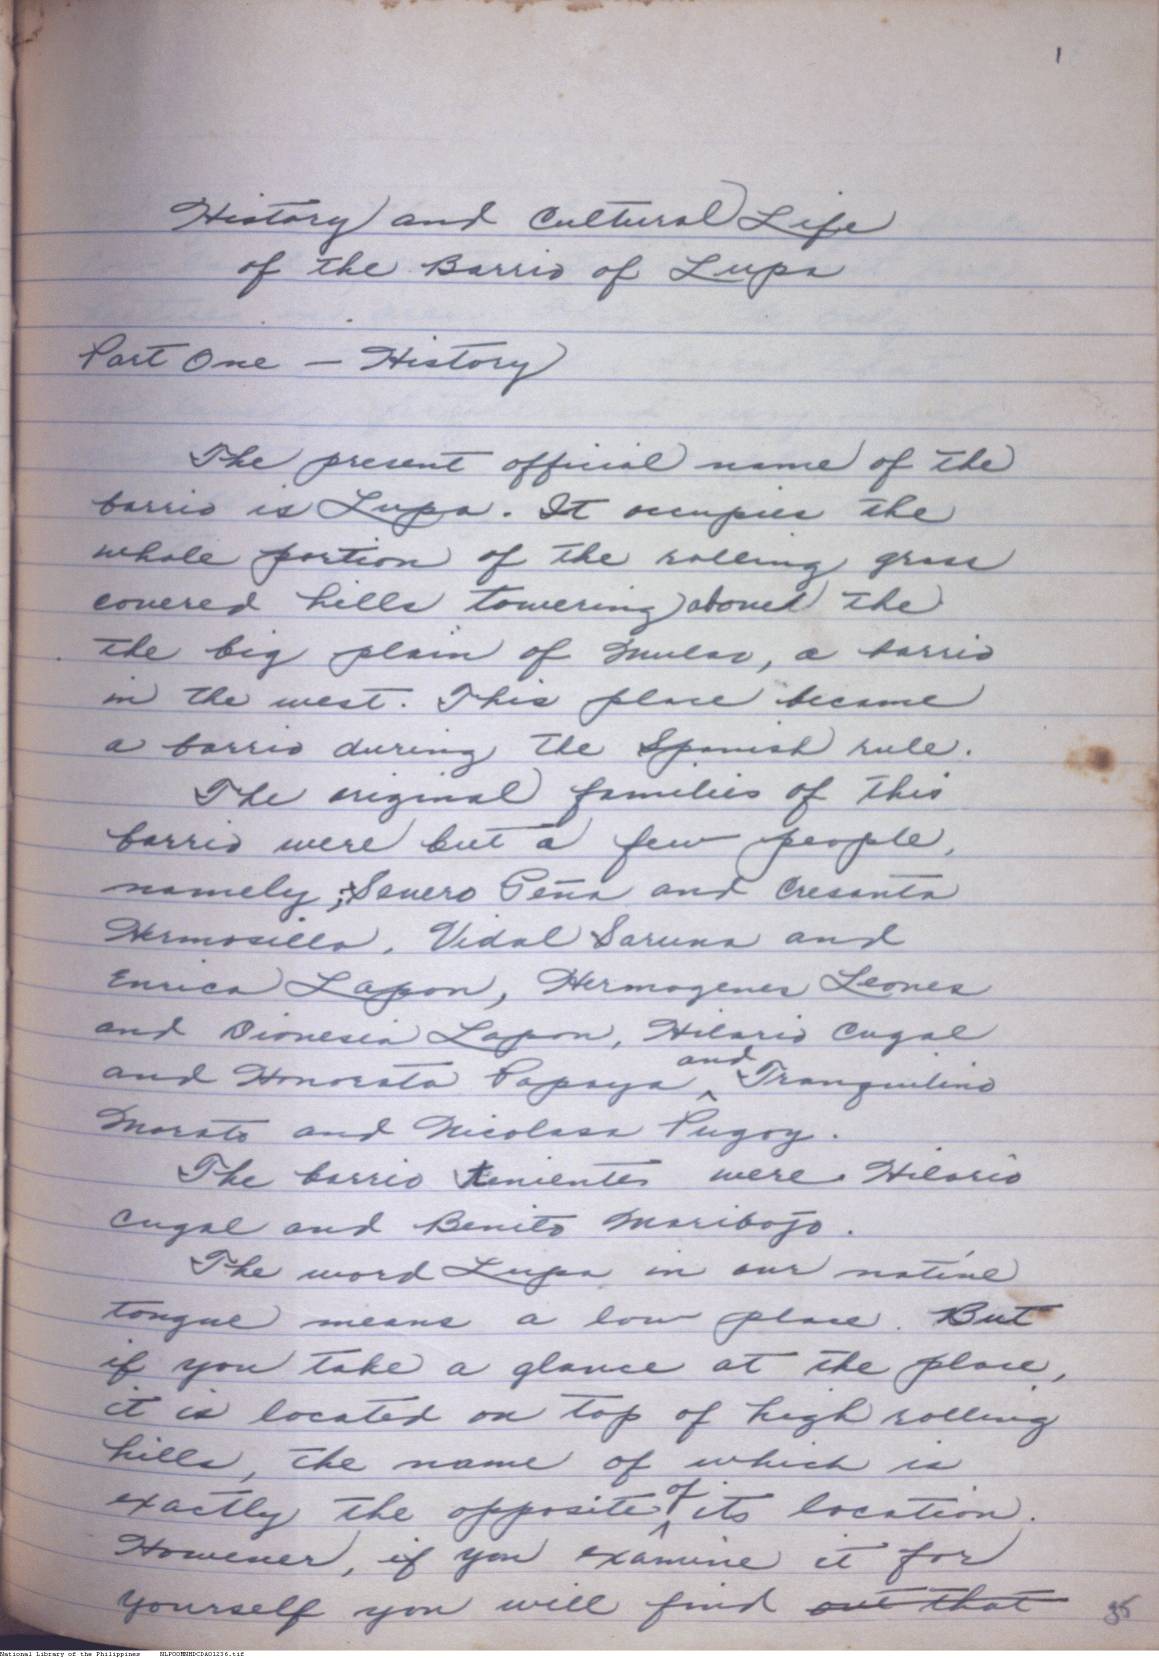 1
History and Cultural Life
of the Barrio of Lupa
Part One — History
The present official name of the
barrio is Lupa. It occupies the
whole portion of the rolling grass
covered hills towering above the
the big plain of Mulao, a barrio
in the west. This place became
a barrio during the Spanish rule.
The original families of this
barrio were but a few people,
namely; Severo Peña and Cresanta
Hermosilla, Vidal Saruna and
Enrica Lapon, Hermogenes Leones
and Dionesia Lapon, Hilario Cugal
and Honorata Papaya and Tranquilino
Morato and Nicolasa Pugoy.
The barrio tenientes were Hilario
Cugal and Benito Maribojo.
The word Lupa in our native
tongue means a low place. But
if you take a glance at the place,
it is located on top of high rolling
hills, the name of which is
exactly the opposite of its location.
However, if you examine it for
yourself you will find out that
85
National Library of the Philippines NLPOOMNHDCDA01236.tif